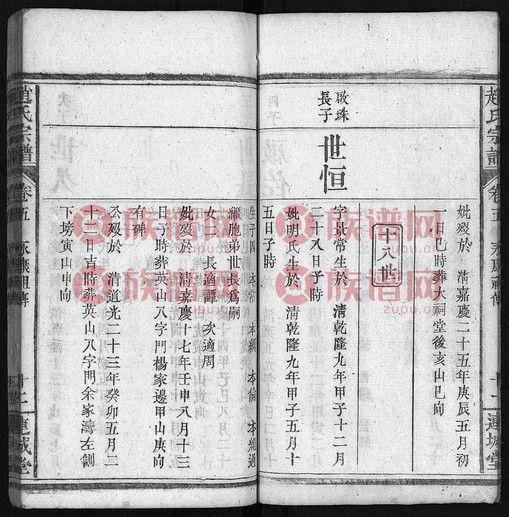 趙氏宗譜
卷五
十一
連城堂
妣歿於 清嘉慶二十五年庚辰五月初
一日巳時葬大祠堂後亥山巳向
十八世
啟珠
長子
世恒
字景常生於 清乾隆九年甲子十二月
二十八日子時
妣明氏生於 清乾隆九年甲子五月十
五日子時
繼胞弟世長爲嗣
女二 長適譚 次適周
妣歿於 清嘉慶十七年壬申八月十三
日子時葬英山八字門楊家邊甲山庚向
有碑
公歿於 清道光二十三年癸卯五月二
十二日吉時葬英山八字門余家灣左側
下塝寅山申向
趙氏宗譜
卷五
十二
連城堂
族谱网
zupu.cn